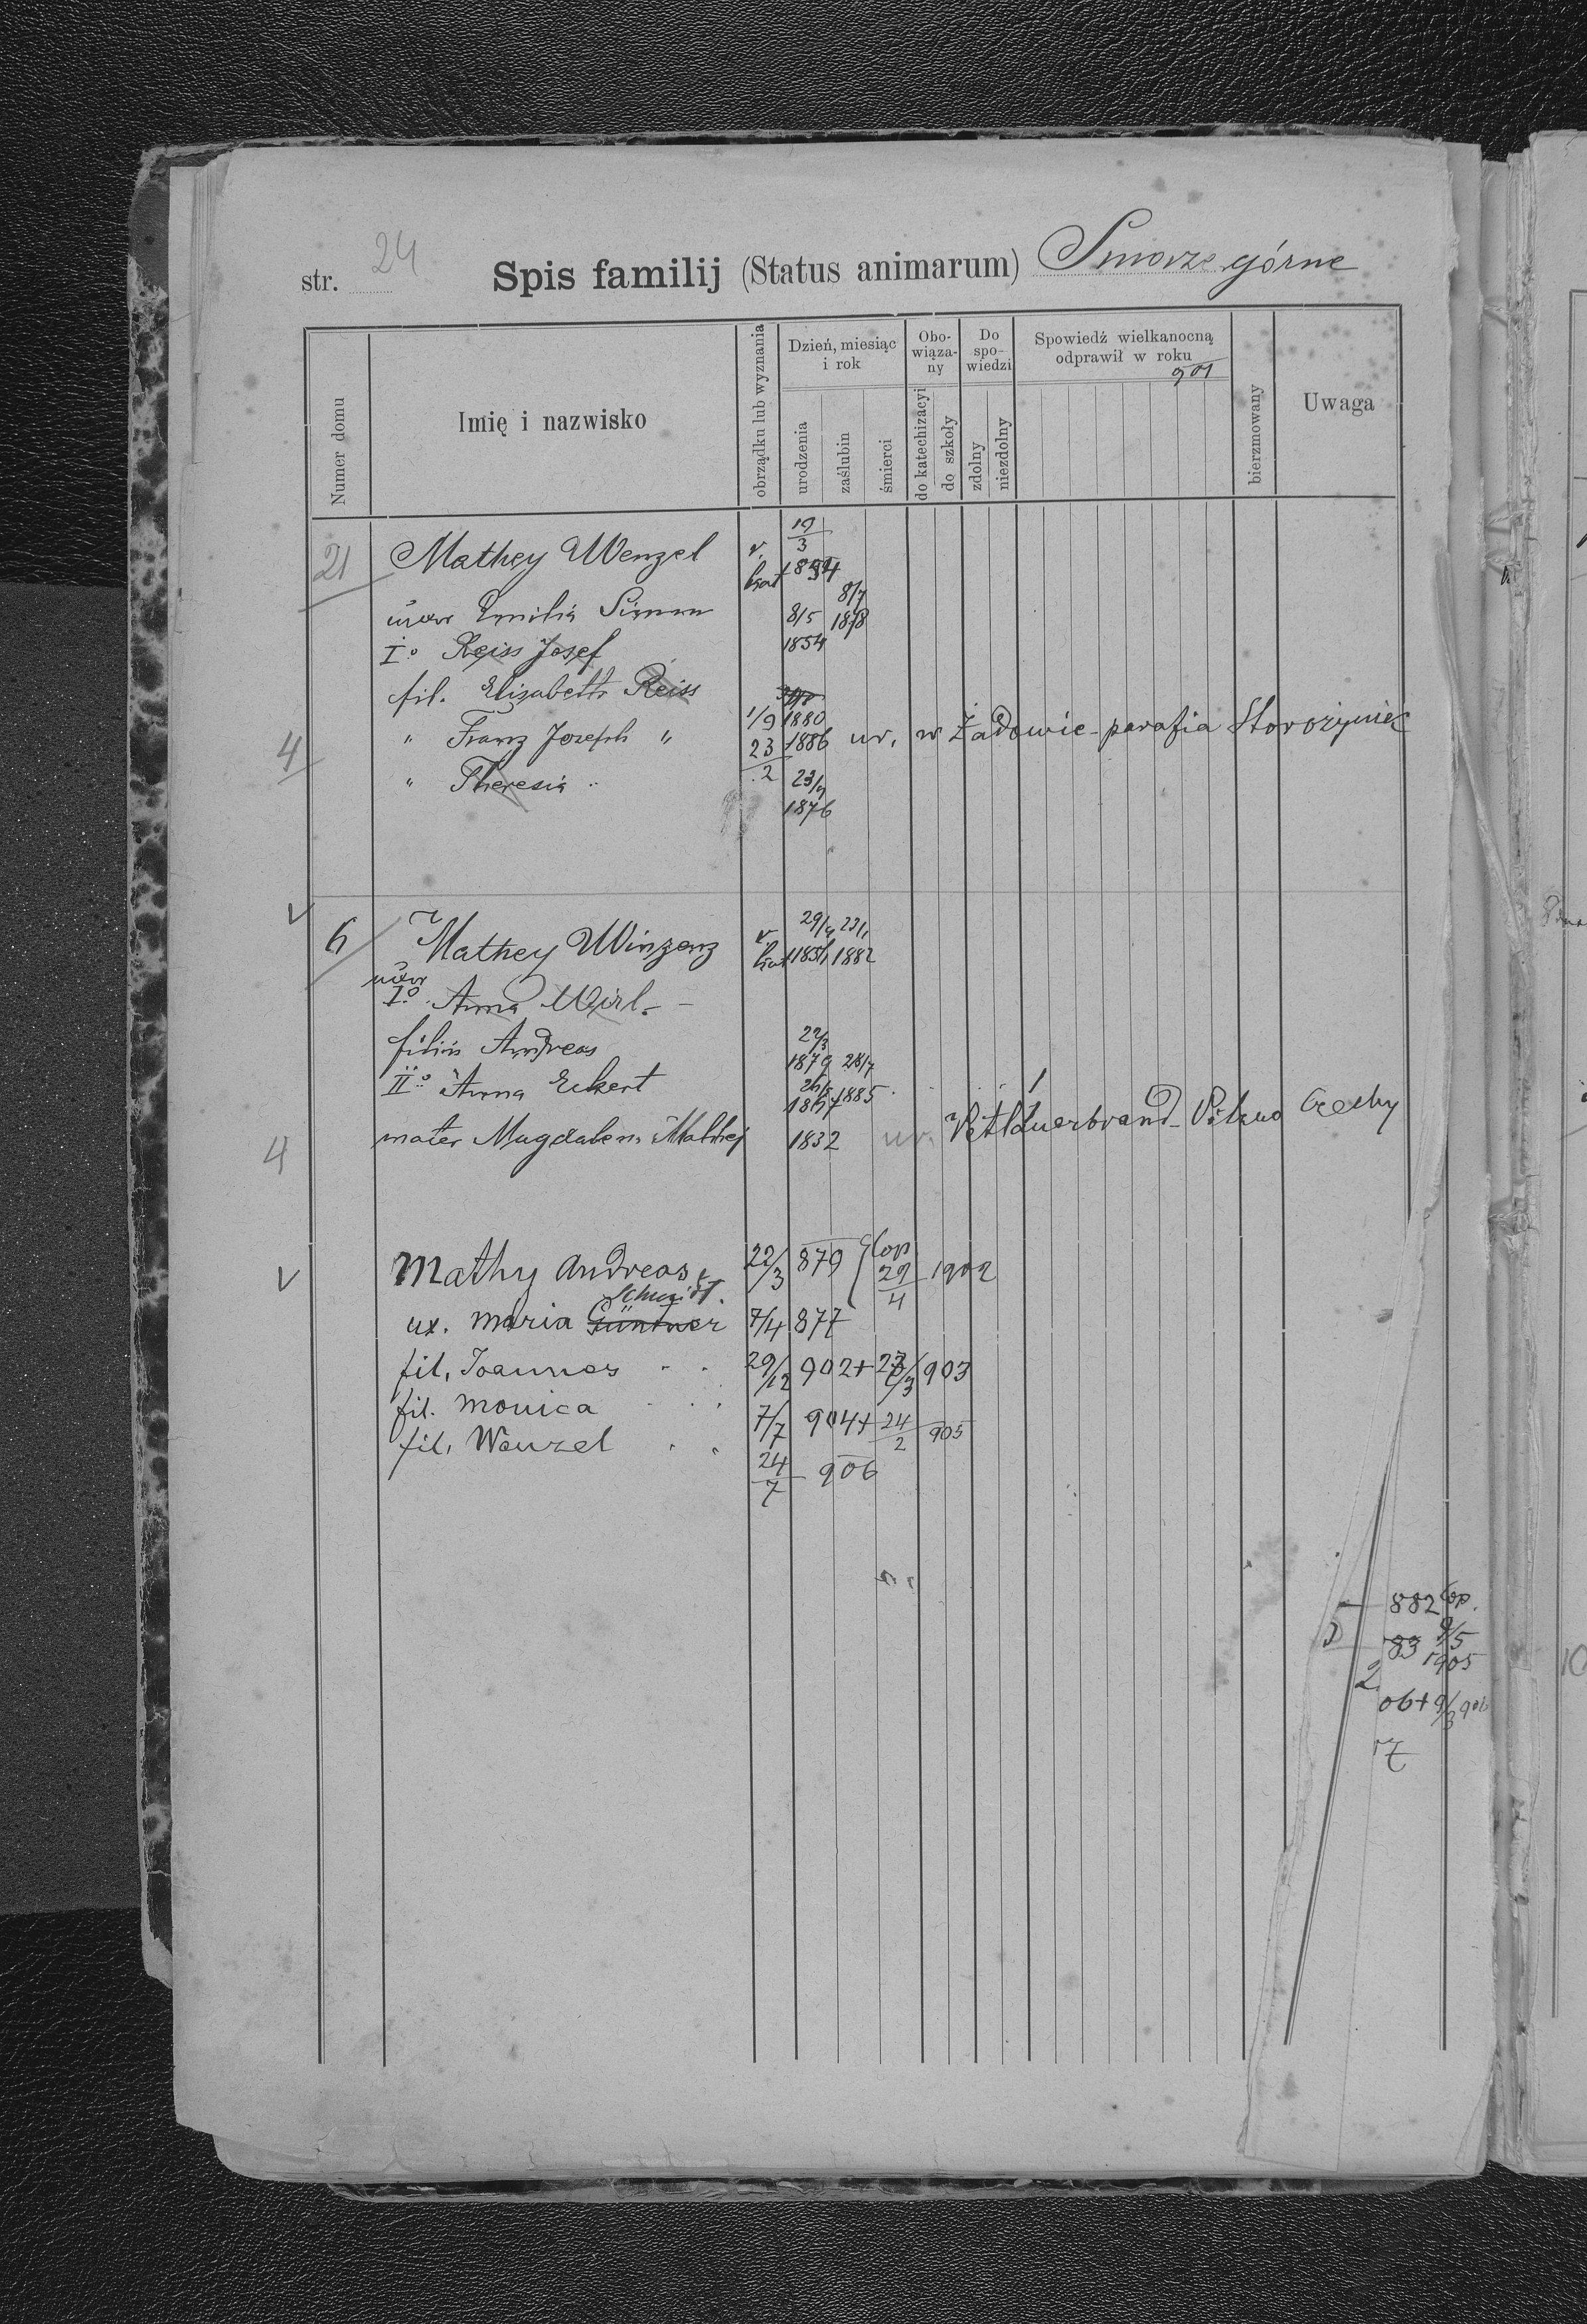 str. 24 Spis familij (Status animarum) Smorze górne
Numer domu
Imię i nazwisko
obrządku lub wyznania
Dzień, miesiąc i rok
urodzenia
zaślubin
śmierci
Obo-wiąza-ny
do katechizacyi
do szkoły
Do spo-wiedzi
zdolny
niezdolny
Spowiedź wielkanocną odprawił w roku
901
bierzmowany
Uwaga
21 Mathey Wenzel r. kat 19/3
uxor Emilia Simon 8/5 1854 8/7 1878
I° Reiss Josef
fil. Elisabeth Reiss 1880
" Franz Joseph " 1/9 1886 ur. w Żadowie - parafia Storożyniec
23/2
4
" Theresia " 23/9 1876
6 Mathey Winzenz r. kat 29/4 1851 23/1 1882
uxor
I° Anna Wirl -
filius Andreas 22/3 1879
II° Anna Eckert 28/7 1885
4 mater Magdalena Mathej 1832 ur. Vetláuerbrand - Pilzno Czechy
Mathy Andreas 22/3 879 Cop 29/4 1902
Schmidt.
ux. Maria Güntner 7/4 877
fil. Joannes " " 29/12 902 + 903
fil. Monica " " 7/7 904 + 24/2 905
fil. Wenzel " " 24/7 906
882 Cop.
83 9/5
1905
2
06 + 9/3 906
7